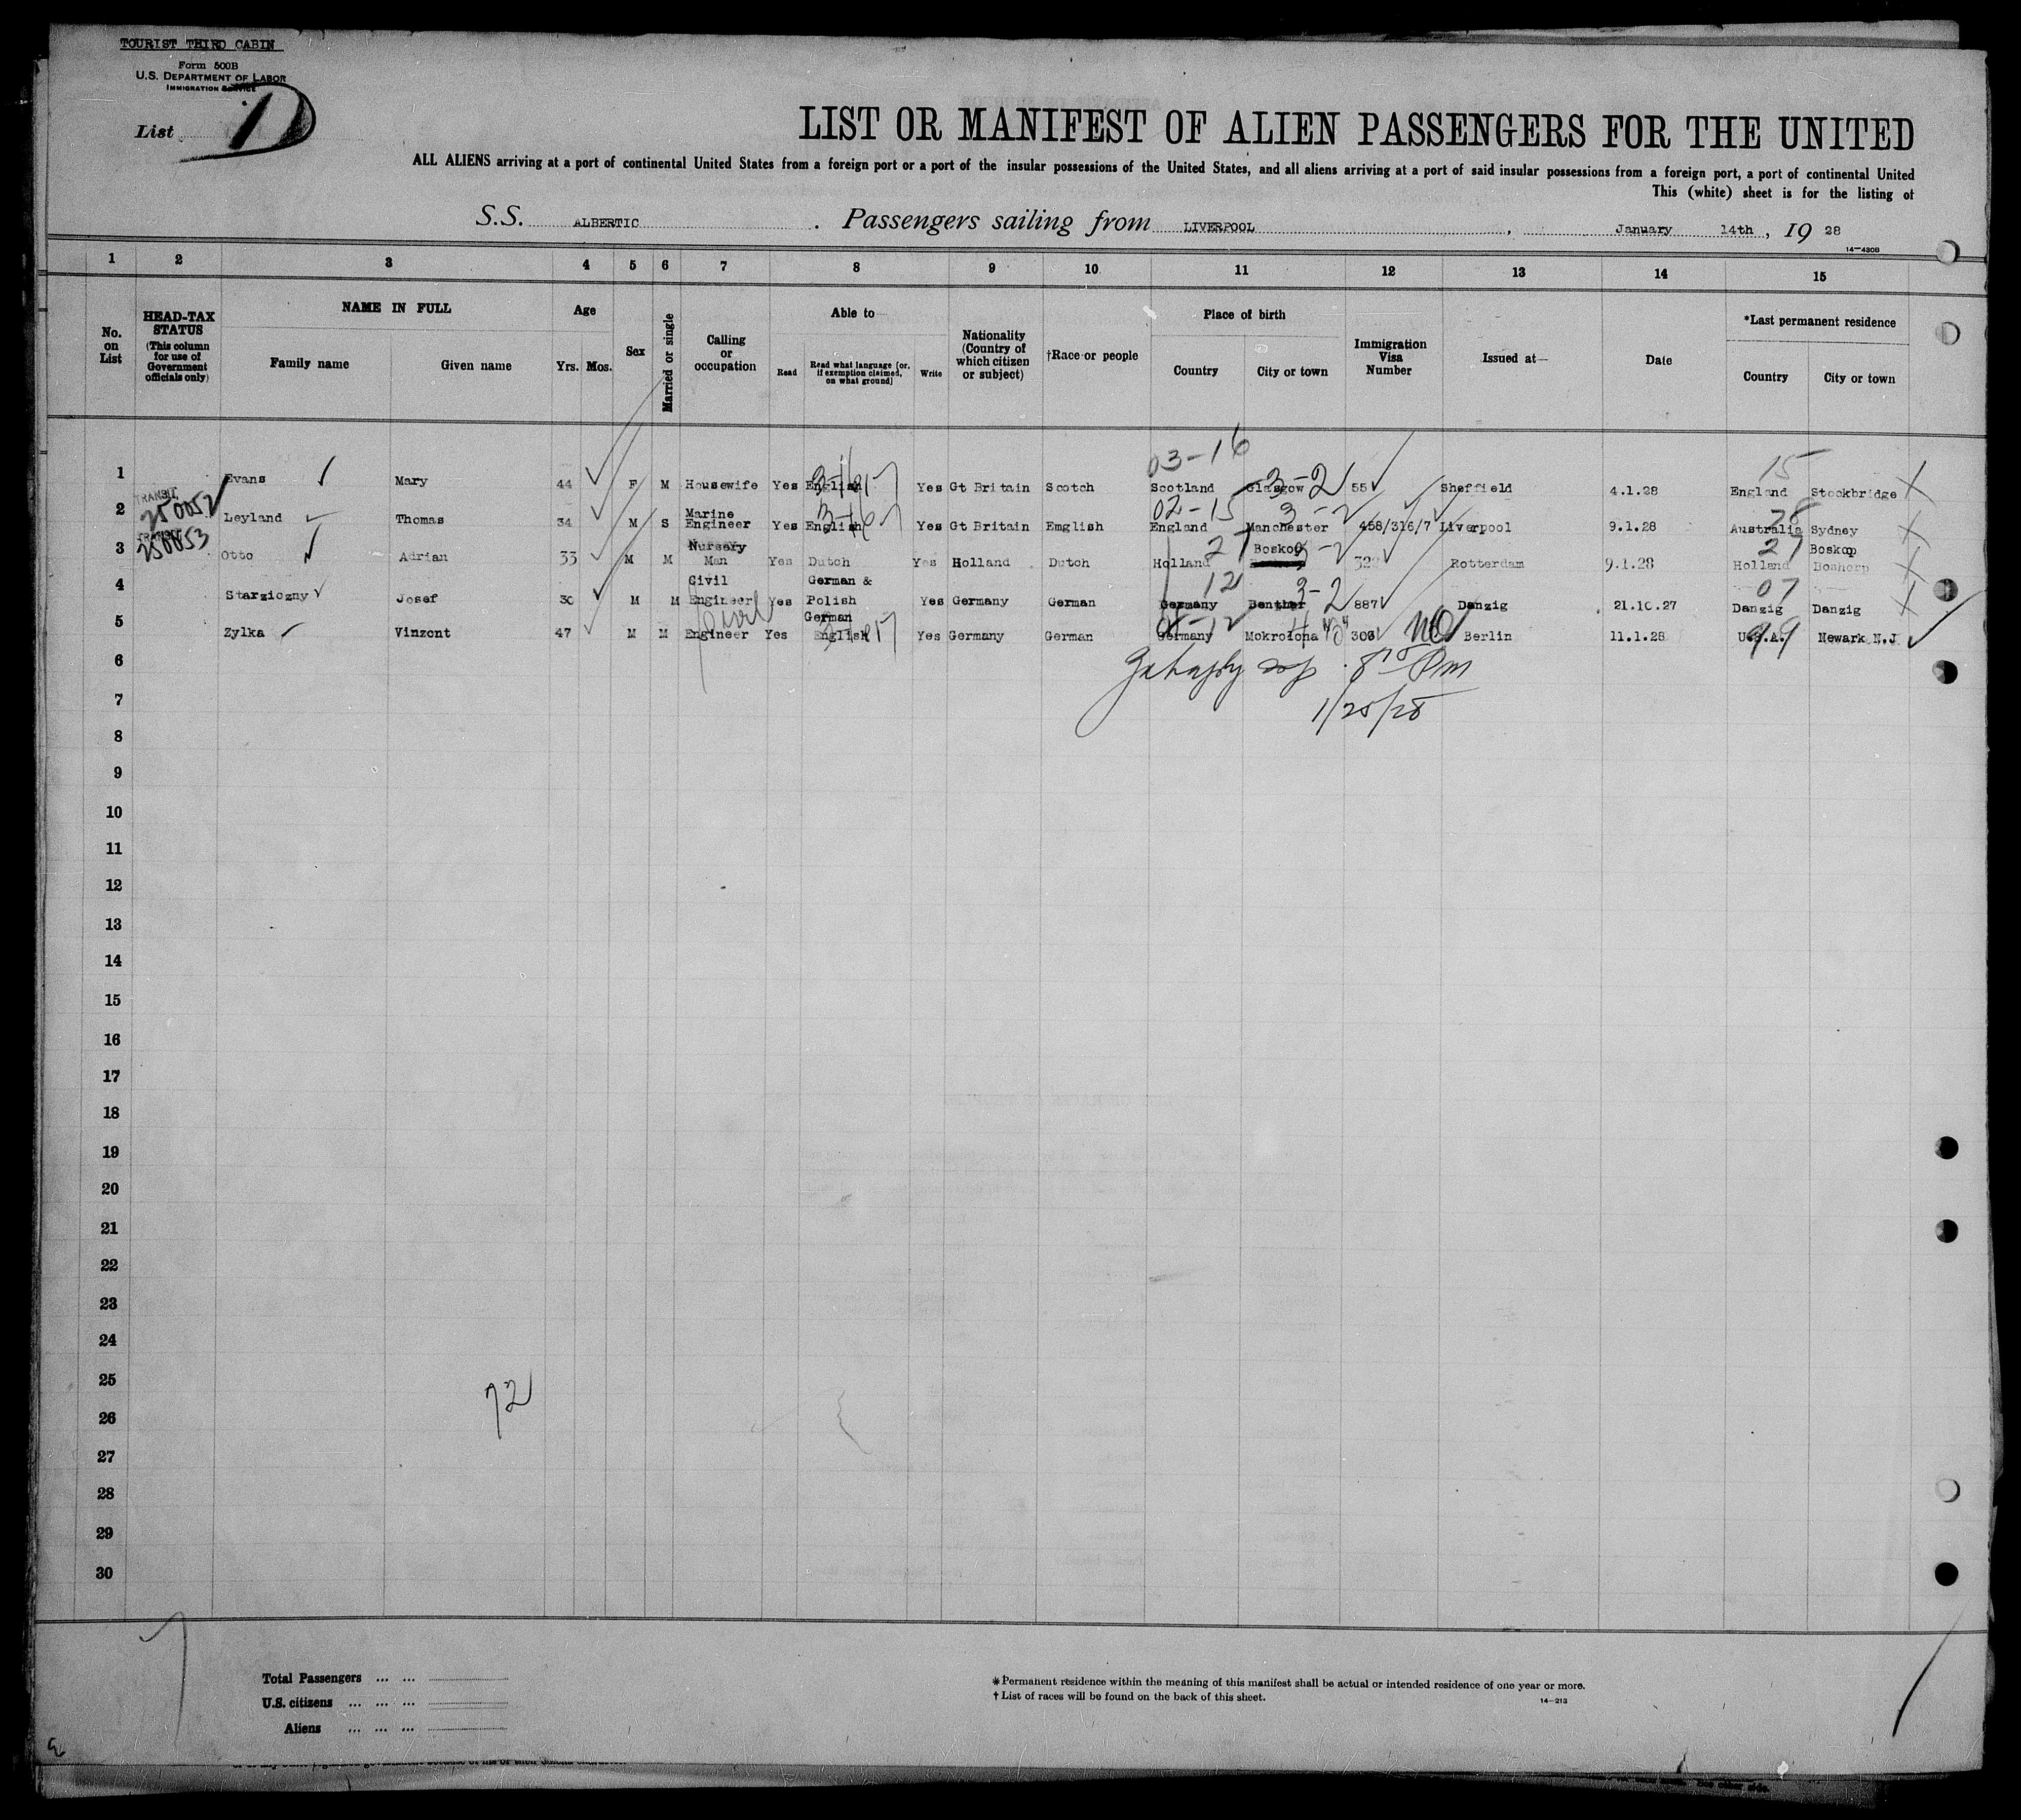 TOURIST THIRD CABIN
Form 500B
U.S. DEPARTMENT OF LABOR
IMMIGRATION SERVICE
List D
LIST OR MANIFEST OF ALIEN PASSENGERS FOR THE UNITED
ALL ALIENS arriving at a port of continental United States from a foreign port or a port of the insular possessions of the United States, and all aliens arriving at a port of said insular possessions from a foreign port, a port of continental United
This (white) sheet is for the listing of
S.S. ALBERTIC . Passengers sailing from LIVERPOOL , January 14th , 19 28
14—430B
1 2 3 4 5 6 7 8 9 10 11 12 13 14 15
No. on List
HEAD-TAX STATUS (This column for use of Government officials only)
NAME IN FULL
Family name Given name
Age
Yrs. Mos.
Sex
Married or single
Calling or occupation
Able to—
Read Read what language [or, if exemption claimed, on what ground] Write
Nationality (Country of which citizen or subject)
†Race or people
Place of birth
Country City or town
Immigration Visa Number
Issued at—
Date
*Last permanent residence
Country City or town
03-16 15
1 Evans Mary 44 F M Housewife Yes English Yes Gt Britain Scotch Scotland Glasgow 3-2 55 Sheffield 4.1.28 England Stockbridge
TRANSIT 250052 02-15 3-2 28
2 Leyland Thomas 34 M S Marine Engineer Yes English Yes Gt Britain Emglish England Manchester 458/316/7 Liverpool 9.1.28 Australia Sydney
TRANSIT 250053 27 Boskop 3-2 27 Boskop
3 Otto Adrian 33 M M Nursery Man Yes Dutch Yes Holland Dutch Holland Rotterdam 9.1.28 Holland Boshorp
12 3-2 07
4 Starziczny Josef 30 M M Civil Engineer Yes German & Polish Yes Germany German Germany Benther 887 Danzig 21.10.27 Danzig Danzig
5 Zylka Vinzent 47 M M Engineer Yes German English Yes Germany German Germany Mokrolona 303 Berlin 11.1.28 U.S.A. 99 Newark N.J
6
1/25/28
7
8
9
10
11
12
13
14
15
16
17
18
19
20
21
22
23
24
25
72
26
27
28
29
30
Total Passengers ... ...
U.S. citizens ... ... ...
Aliens ... ... ...
* Permanent residence within the meaning of this manifest shall be actual or intended residence of one year or more.
† List of races will be found on the back of this sheet. 14—213